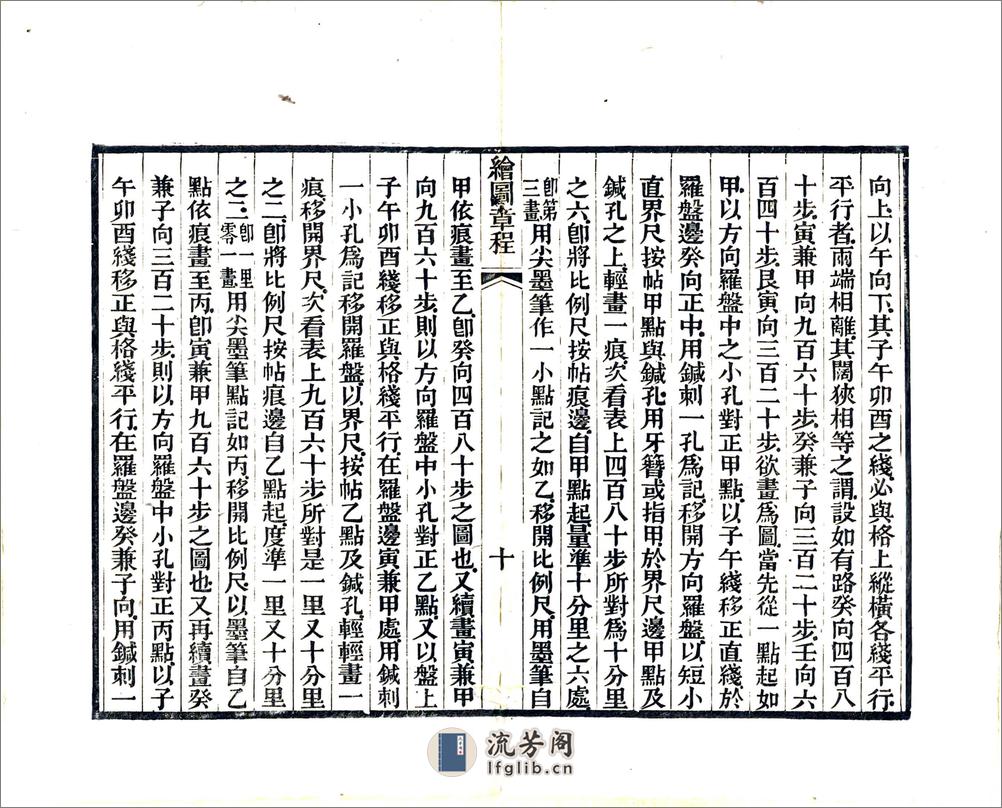 向上以午向下其子午卯酉之綫必與格上縱橫各綫平行
平行者兩端相離其闊狹相等之謂設如有路癸向四百八
十步寅兼甲向九百六十步癸兼子向三百二十步壬向六
百四十步艮寅向三百二十步欲畫爲圖當先從一點起如
甲以方向羅盤中之小孔對正甲點以子午綫移正直綫於
羅盤邊癸向正中用鍼刺一孔爲記移開方向羅盤以短小
直界尺按帖甲點與鍼孔用牙簪或指甲於界尺邊甲點及
鍼孔之上輕畫一痕次看表上四百八十步所對爲十分里
之六卽將比例尺按帖痕邊自甲點起量準十分里之六處
卽第三畫用尖墨筆作一小點記之如乙移開比例尺用墨筆自
繪圖章程
十
甲依痕畫至乙卽癸向四百八十步之圖也又續畫寅兼甲
向九百六十步則以方向羅盤中小孔對正乙點又以盤上
子午卯酉綫移正與格綫平行在羅盤邊寅兼甲處用鍼刺
一小孔爲記移開羅盤以界尺按帖乙點及鍼孔輕輕畫一
痕移開界尺次看表上九百六十步所對是一里又十分里
之二卽將比例尺按帖痕邊自乙點起度準一里又十分里
之二卽一里零一畫用尖墨筆點記如丙移開比例尺以墨筆自乙
點依痕畫至丙卽寅兼甲九百六十步之圖也又再續畫癸
兼子向三百二十步則以方向羅盤中小孔對正丙點以子
午卯酉綫移正與格綫平行在羅盤邊癸兼子向用鍼刺一
流芳阁
lfglib.cn